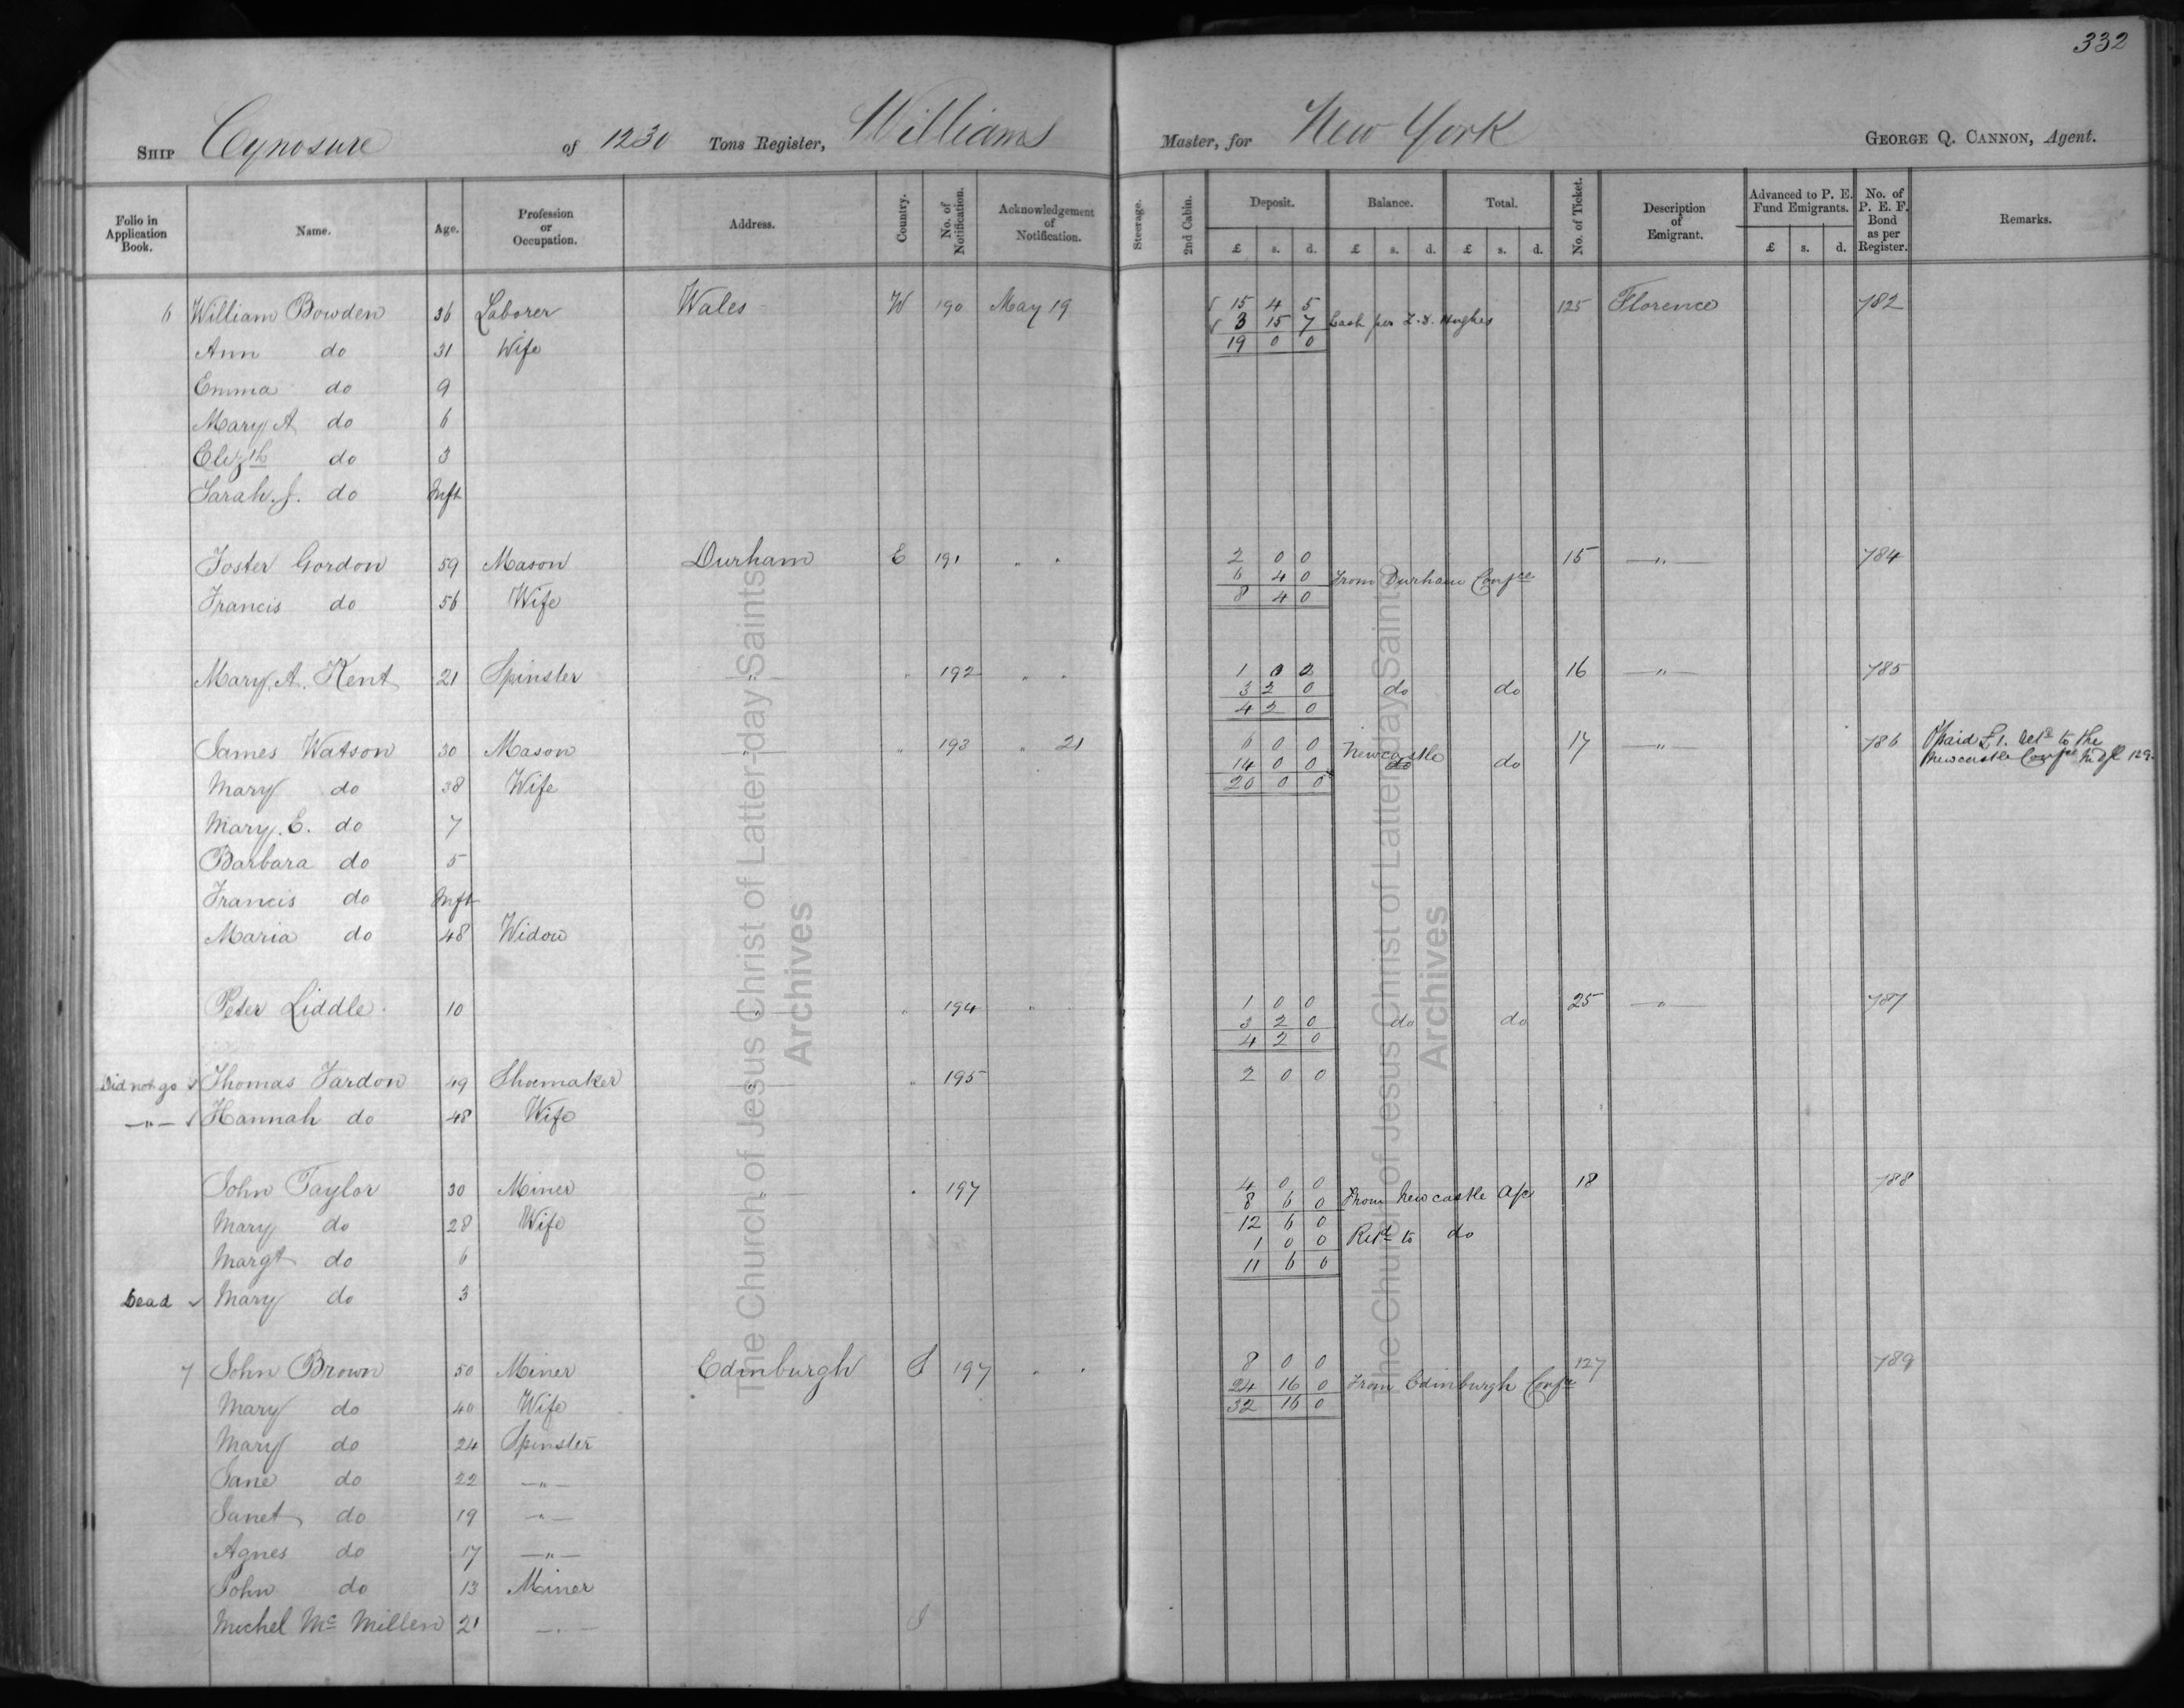 332
SHIP Cynosure of 1230 Tons Register, Williams Master, for New York GEORGE Q. CANNON, Agent.
Folio in Application Book. Name. Age. Profession or Occupation. Address. Country. No. of Notification. Acknowledgement of Notification. Steerage. 2nd Cabin. Deposit. Balance. Total. No. of Ticket. Description of Emigrant. Advanced to P. E. Fund Emigrants. No. of P. E. F. Bond as per Register. Remarks.
£ s. d. £ s. d. £ s. d. £ s. d.
6 William Bowden 36 Laborer Wales W 190 May 19 15 4 5 125 Florence 782
3 15 7 Cash per Hughes
Ann do 31 Wife 19 0 0
Emma do 9
Mary A do 6
Elizth do 3
Sarah. J. do Inft
Foster Gordon 59 Mason Durham E 191 " " 2 0 0 15 " 784
6 4 0 From Durham Confce
Francis do 56 Wife 8 4 0
Mary. A. Kent 21 Spinster " " 192 " " 1 0 2 16 " 785
3 2 0 do do
4 2 0
James Watson 30 Mason " " 193 " 21 6 0 0 17 " 786 Paid £1. Retd to the
14 0 0 Newcastle do do Newcastle Confce 129
Mary do 38 Wife 20 0 0
Mary. E. do 7
Barbara do 5
Francis do Inft
Maria do 48 Widow
Peter Liddle 10 " " 194 " 1 0 0 25 " 787
3 2 0 do do
4 2 0
Did not go Thomas Fardon 49 Shoemaker " " 195 2 0 0
" Hannah do 48 Wife
John Taylor 30 Miner " " 197 4 0 0 18 788
8 6 0 From Newcastle a/c
Mary do 28 Wife 12 6 0
1 0 0 Retd to do
Margt do 6 11 6 0
Dead Mary do 3
7 John Brown 50 Miner Edinburgh S 197 " " 8 0 0 127 789
24 16 0 From Edinburgh Confce
Mary do 40 Wife 32 16 0
Mary do 24 Spinster
Jane do 22 "
Janet do 19 "
Agnes do 17 "
John do 13 Miner
Michel Mc Millen 21 "
The Church of Jesus Christ of Latter-day Saints
Archives
The Church of Jesus Christ of Latter-day Saints
Archives